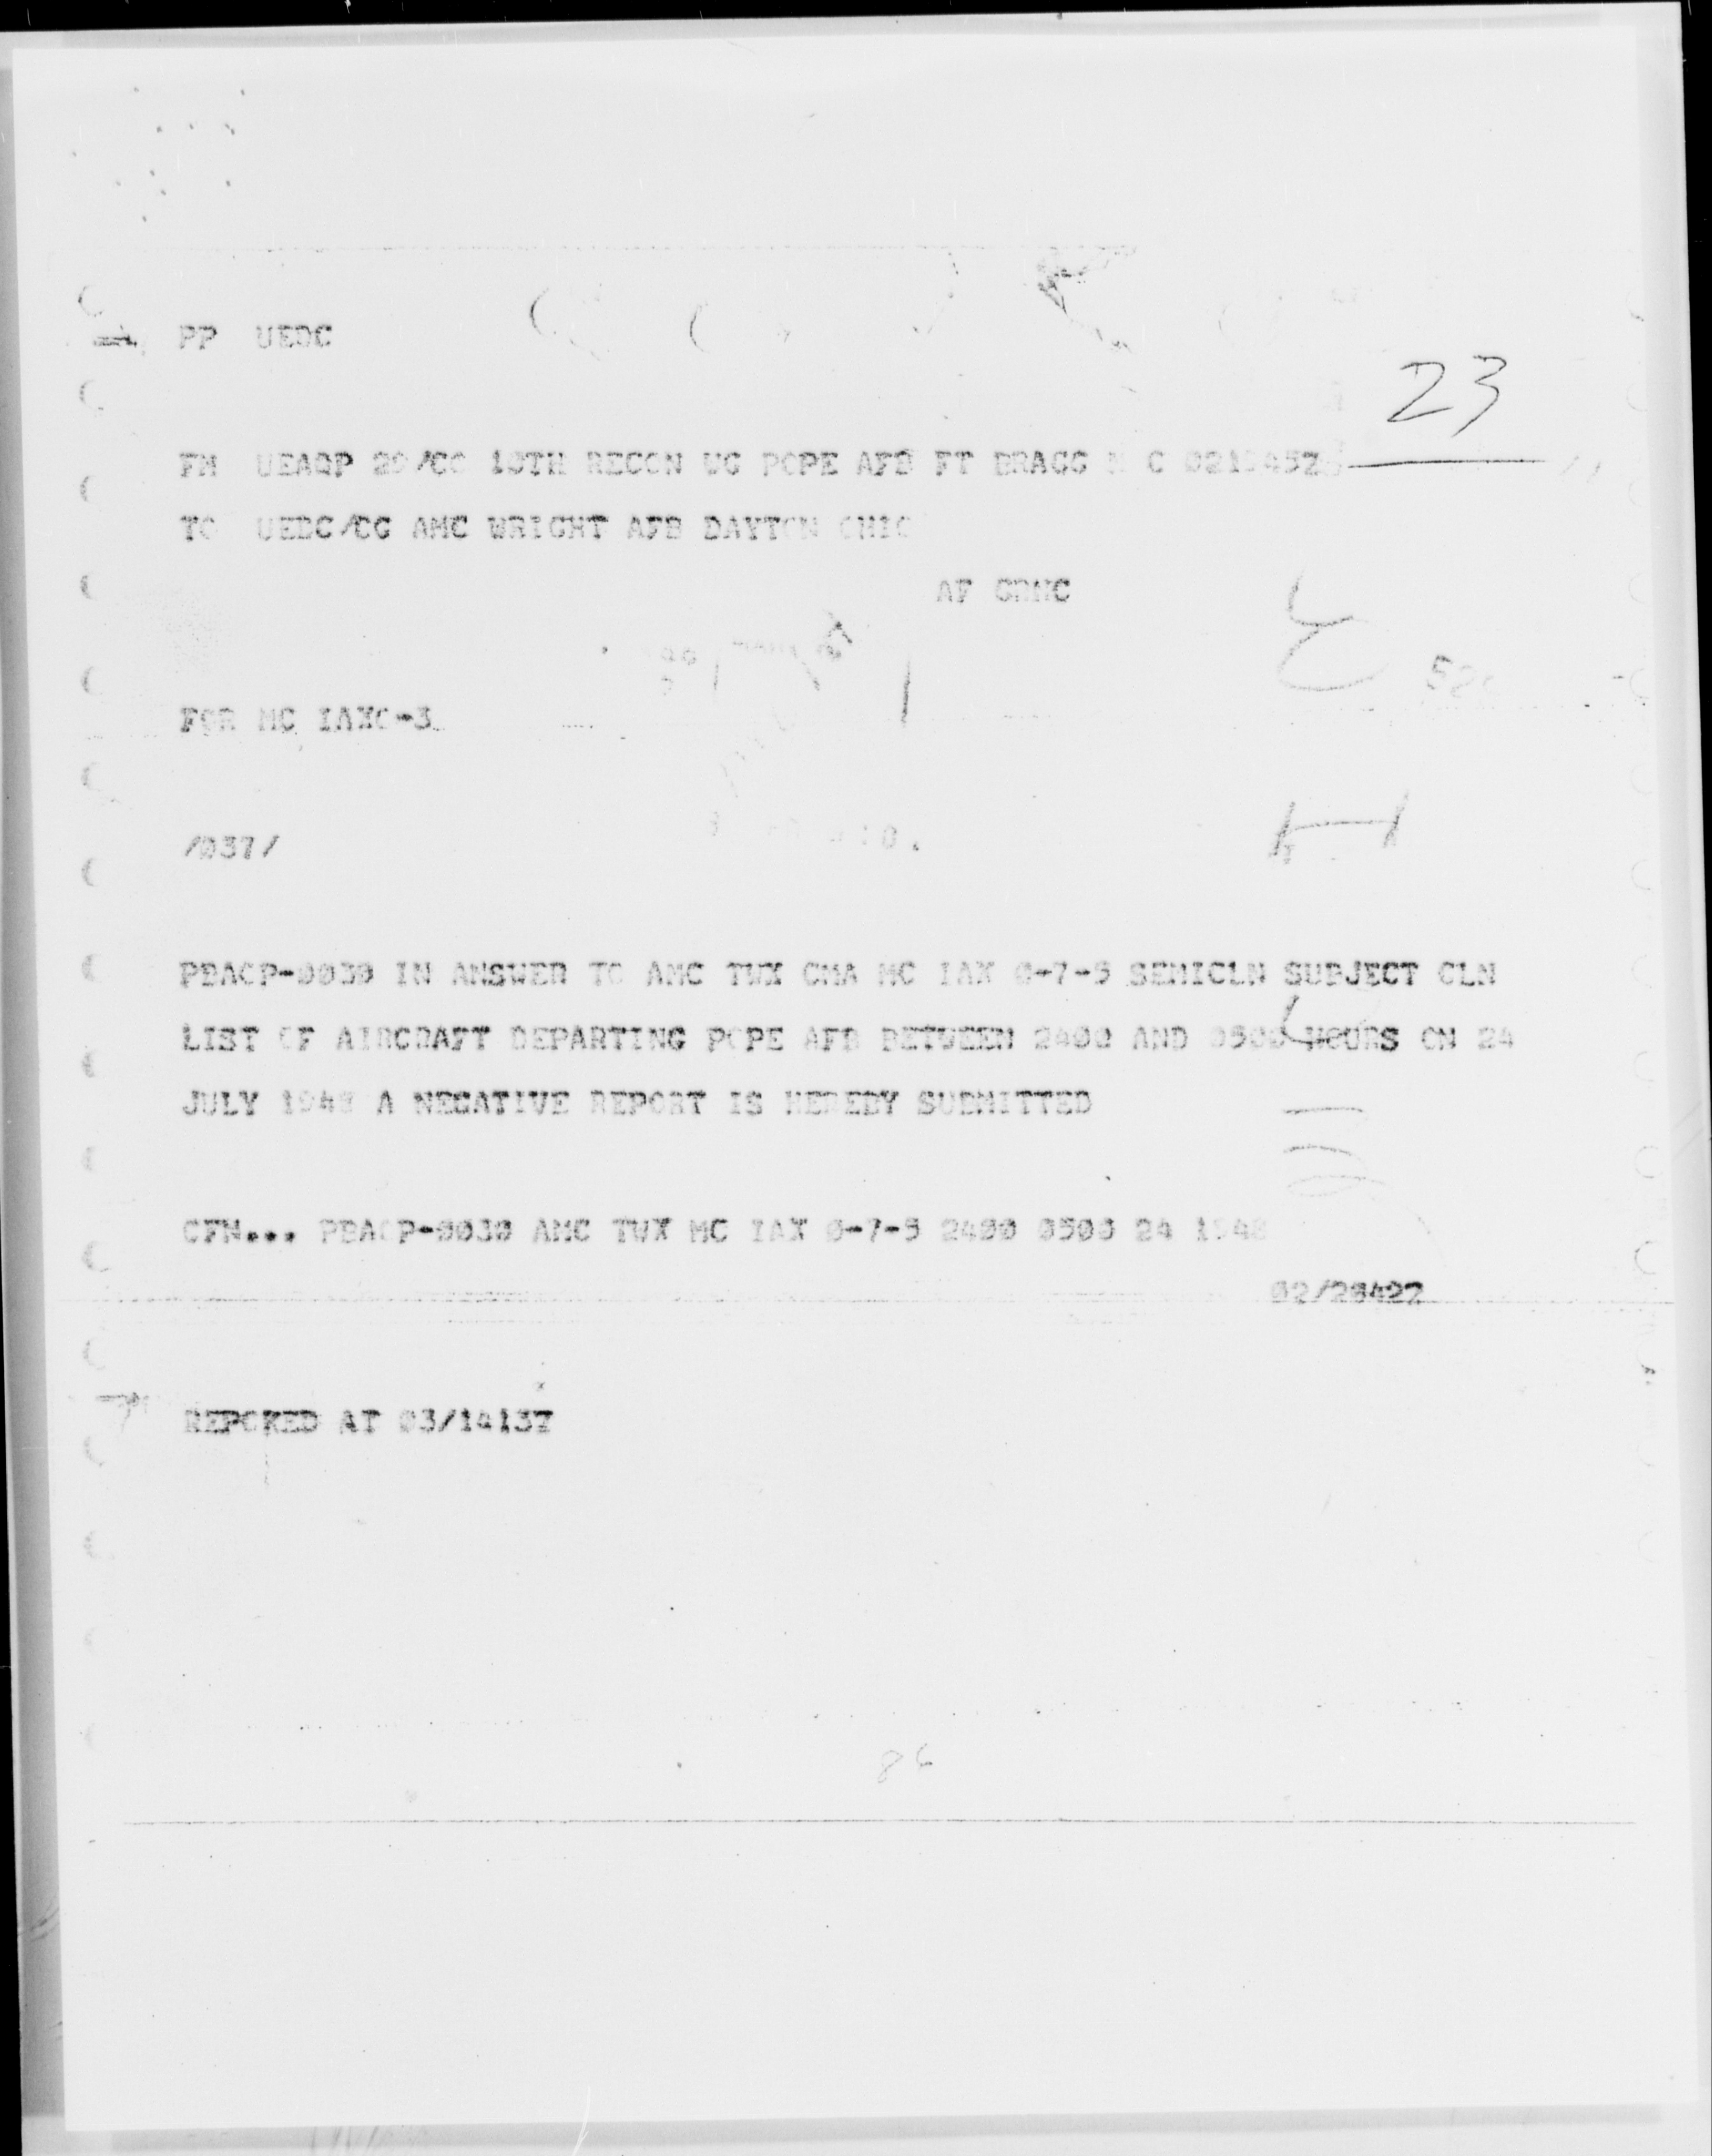 PP UEDC
23
FM UEAQP 20/CO 10TH RECON WG POPE AFB FT BRAGG N C 021945Z
TO UEDC/CG AMC WRIGHT AFB DAYTON OHIO
AF GRNC
FOR MC IAXO-3
/037/
PBAOP-0030 IN ANSWER TO AMC TWX CMA MC IAX 0-7-5 SEMICLN SUBJECT CLN
LIST OF AIRCRAFT DEPARTING POPE AFB BETWEEN 2400 AND 0500 HOURS ON 24
JULY 1948 A NEGATIVE REPORT IS HEREBY SUBMITTED
CFN... PBAOP-0030 AMC TWX MC IAX 0-7-5 2400 0500 24 1948
02/2042Z
REPOKED AT 03/1413Z
86